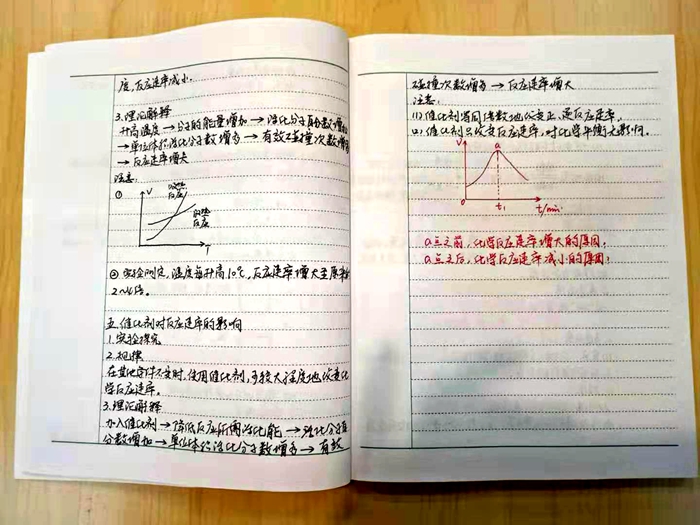 度,反应速率减小.
3.理论解释
升高温度→分子的能量增加→活化分子百分数增加
→单位体积活化分子数增多→有效碰撞次数增多
→反应速率增大
注意:
① V
吸热
反应
放热
反应
T
② 实验测定,温度每升高10℃,反应速率增大至原来的
2~4倍。
五.催化剂对反应速率的影响
1.实验探究
2.规律
在其他条件不变时,使用催化剂,可较大程度地改变化
学反应速率.
3.理论解释
加入催化剂→降低反应所需活化能→活化分子百
分数增加→单位体积活化分子数增多→有效
碰撞次数增多→反应速率增大
注意:
(1)催化剂等同倍数地改变正、逆反应速率.
(2)催化剂只改变反应速率,对化学平衡无影响.
V
a
0
t₁
t/min
a点之前,化学反应速率增大的原因:
a点之后,化学反应速率减小的原因: